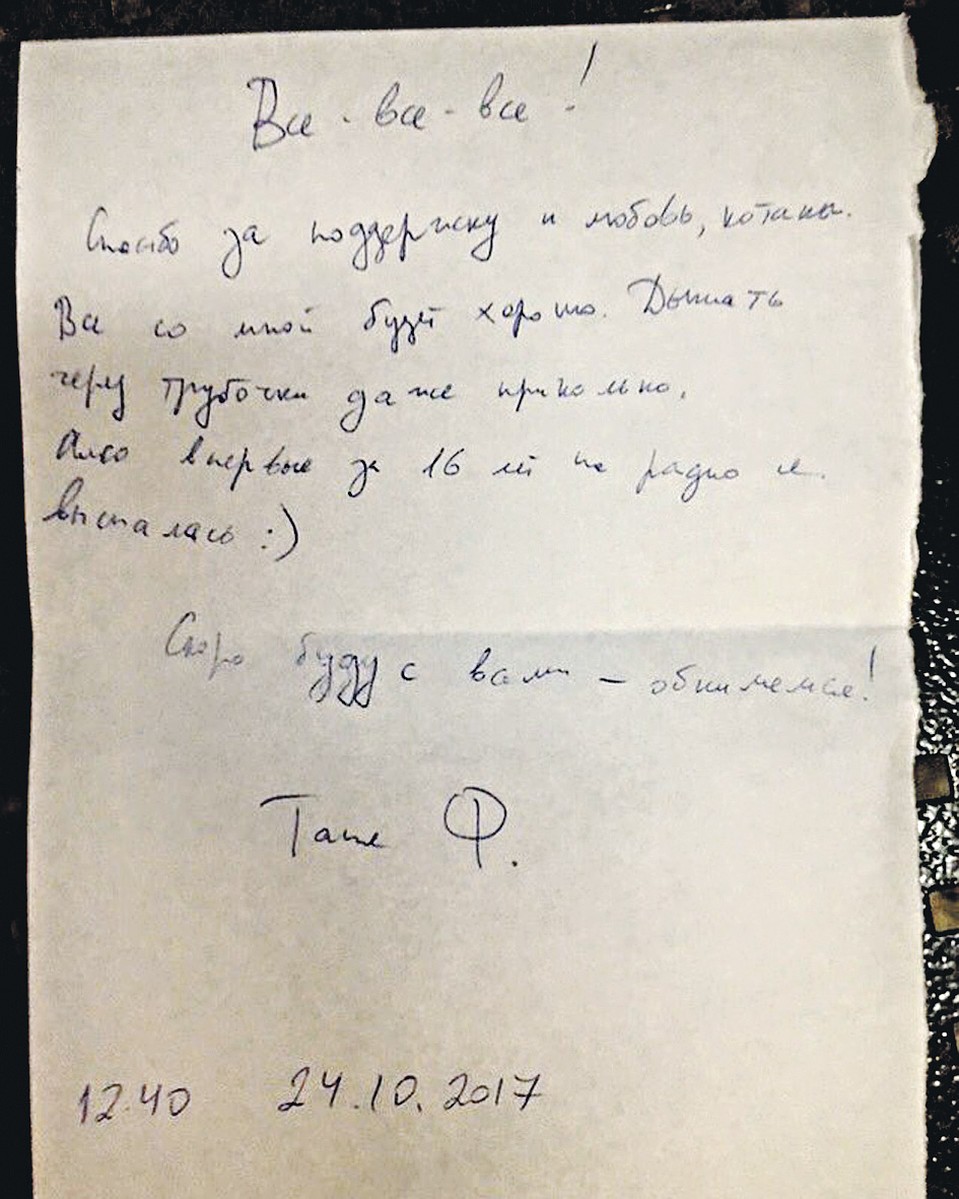 Все - все - все - !
Спасибо за поддержку и любовь, котаны.
Все со мной будет хорошо. Дышать
через трубочки даже прикольно.
впервые за 16 лет не радио и
выспалась :)
Скоро буду с вами - обнимемся!
Таня Ф.
12.40 24.10.2017